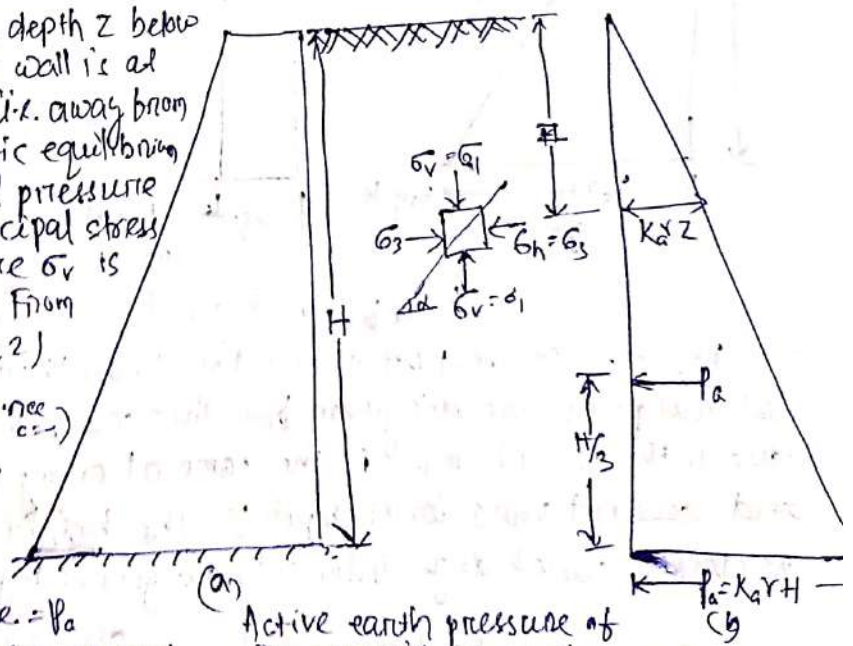 depth z below
wall is at
i.e. away from
ic equilibrium
pressure
cipal stress
σv is
From
2)
H
σv = σ1
σ3
σh = σ3
σv = σ1
α
z
Kaγz
Pa
H/3
Pa = KaγH
(a)
(b)
= Pa
Active earth pressure of